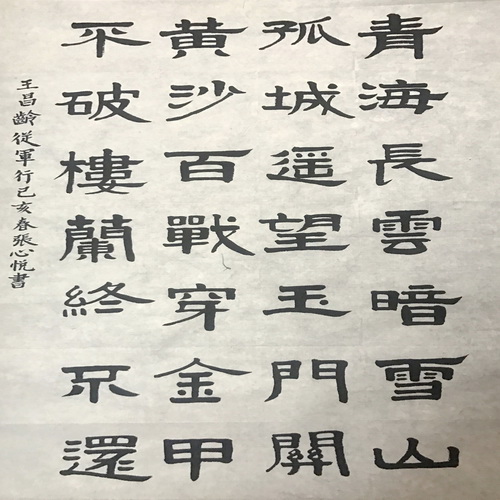 青海長雲暗雪山
孤城遥望玉門關
黃沙百戰穿金甲
不破樓蘭終不還
王昌齡從軍行己亥春張心悅書